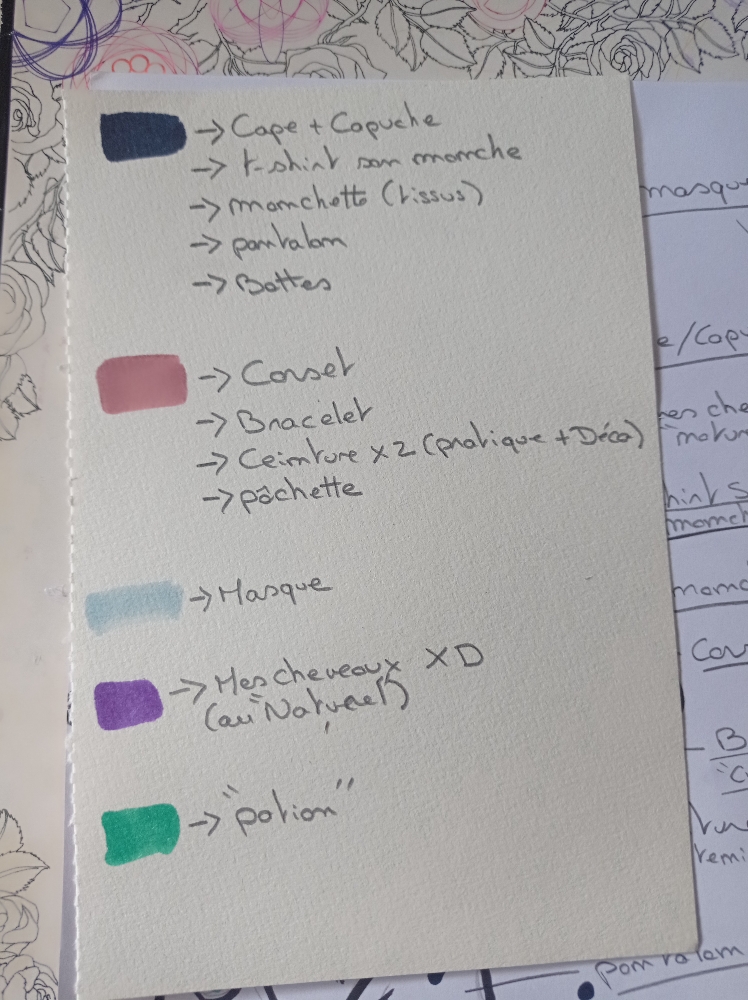 → Cape + Capuche
→ t-shirt san manche
→ manchette (tissus)
→ pantalon
→ Bottes
→ Corset
→ Bracelet
→ Ceinture x2 (pratique + Déco)
→ pôchette
→ Masque
→ Mes cheveaux XD
(au "Naturel")
→ "potion"
masqu
e/Capu
mes che
"natur
hirt s
manch
manc
Cor
B
"C
pantalon